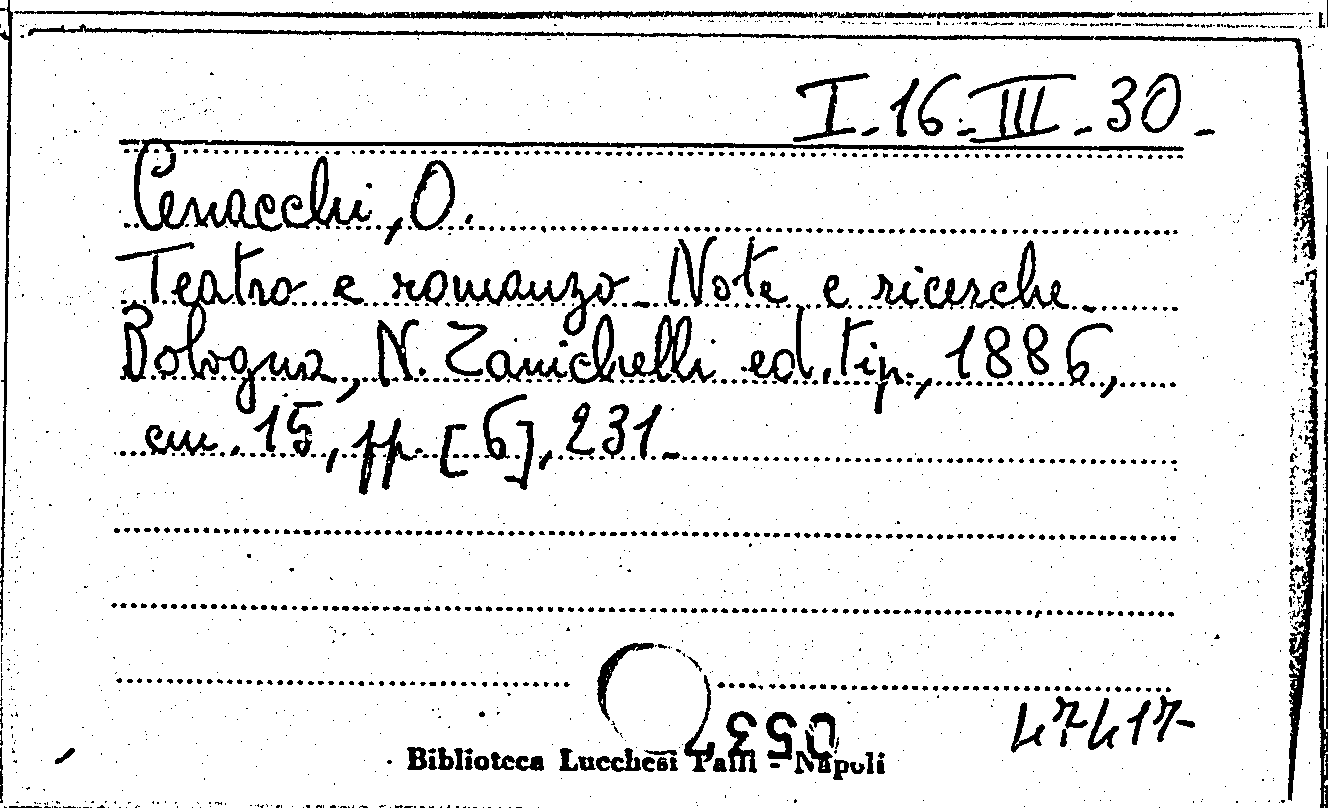 I-16-III-30-
Cenacchi, O.
Teatro e romanzo - Note e ricerche -
Bologna, N. Zanichelli ed. tip., 1886,
cm. 15, pp. [6], 231 -
47417
Biblioteca Lucchesi Palli - Napoli